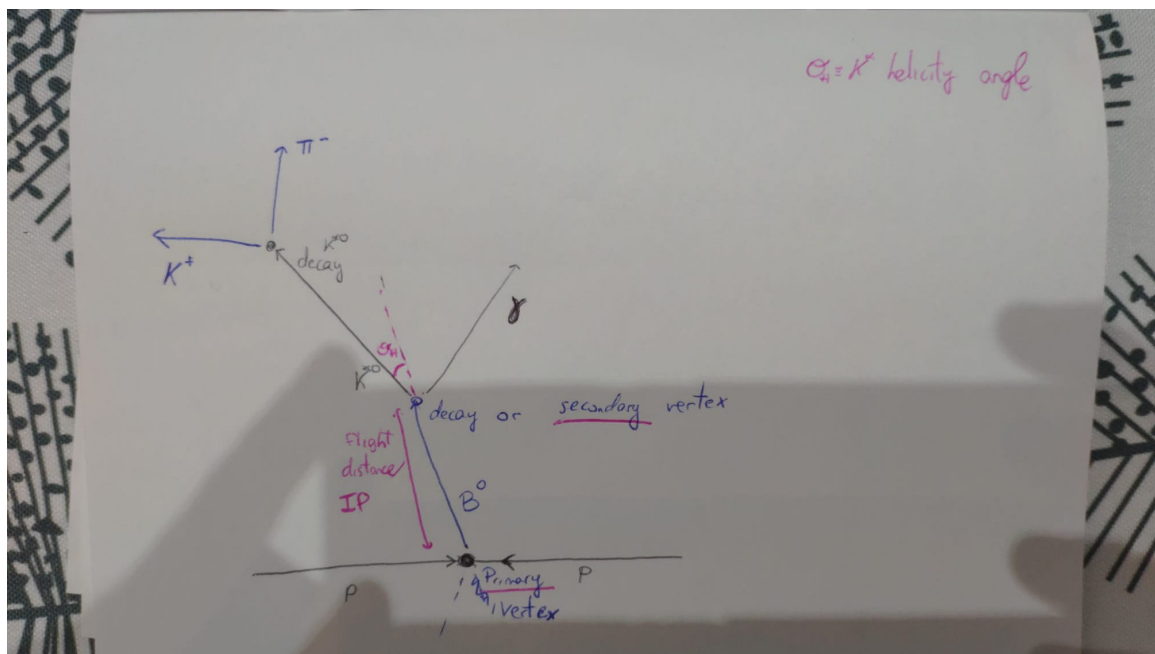 θ_H ≡ K* helicity angle
π⁻
K⁺
K*⁰
decay
γ
θ_H
K*⁰
decay or secondary vertex
Flight
distance
IP
B⁰
P
P
Primary
vertex